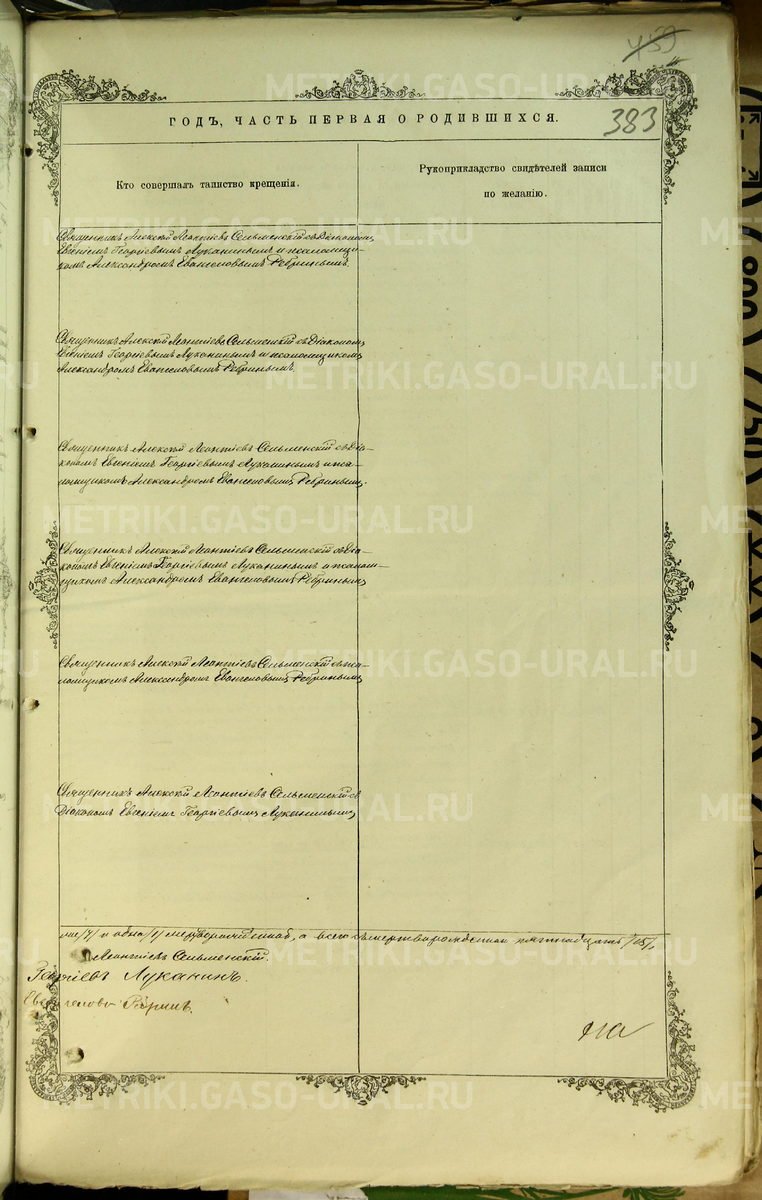 459
383
ГОДЪ, ЧАСТЬ ПЕРВАЯ О РОДИВШИХСЯ.
Кто совершалъ таинство крещенія.
Рукоприкладство свидѣтелей записи
по желанію.
Священникъ Алексій Леонтіевъ Сельменскій съ діакономъ
Евгеніемъ Георгіевымъ Луканинымъ и псаломщи-
комъ Александромъ Евангеловымъ Ребринымъ.
Священникъ Алексій Леонтіевъ Сельменскій съ діакономъ
Евгеніемъ Георгіевымъ Луканинымъ и псаломщикомъ
Александромъ Евангеловымъ Ребринымъ.
Священникъ Алексій Леонтіевъ Сельменскій съ діа-
кономъ Евгеніемъ Георгіевымъ Луканинымъ и пса-
ломщикомъ Александромъ Евангеловымъ Ребринымъ.
Священникъ Алексій Леонтіевъ Сельменскій съ діа-
кономъ Евгеніемъ Георгіевымъ Луканинымъ и псалом-
щикомъ Александромъ Евангеловымъ Ребринымъ
Священникъ Алексій Леонтіевъ Сельменскій съ пса-
ломщикомъ Александромъ Евангеловымъ Ребринымъ
Священникъ Алексій Леонтіевъ Сельменскій съ
діакономъ Евгеніемъ Георгіевымъ Луканинымъ
и одна /1/ мертворожденная, а всего съ мертворожденною пятнадцать /15/.
Леонтіевъ Сельменскій.
Георгіевъ Луканинъ.
Евангеловъ Ребринъ.
METRIKI.GASO-URAL.RU